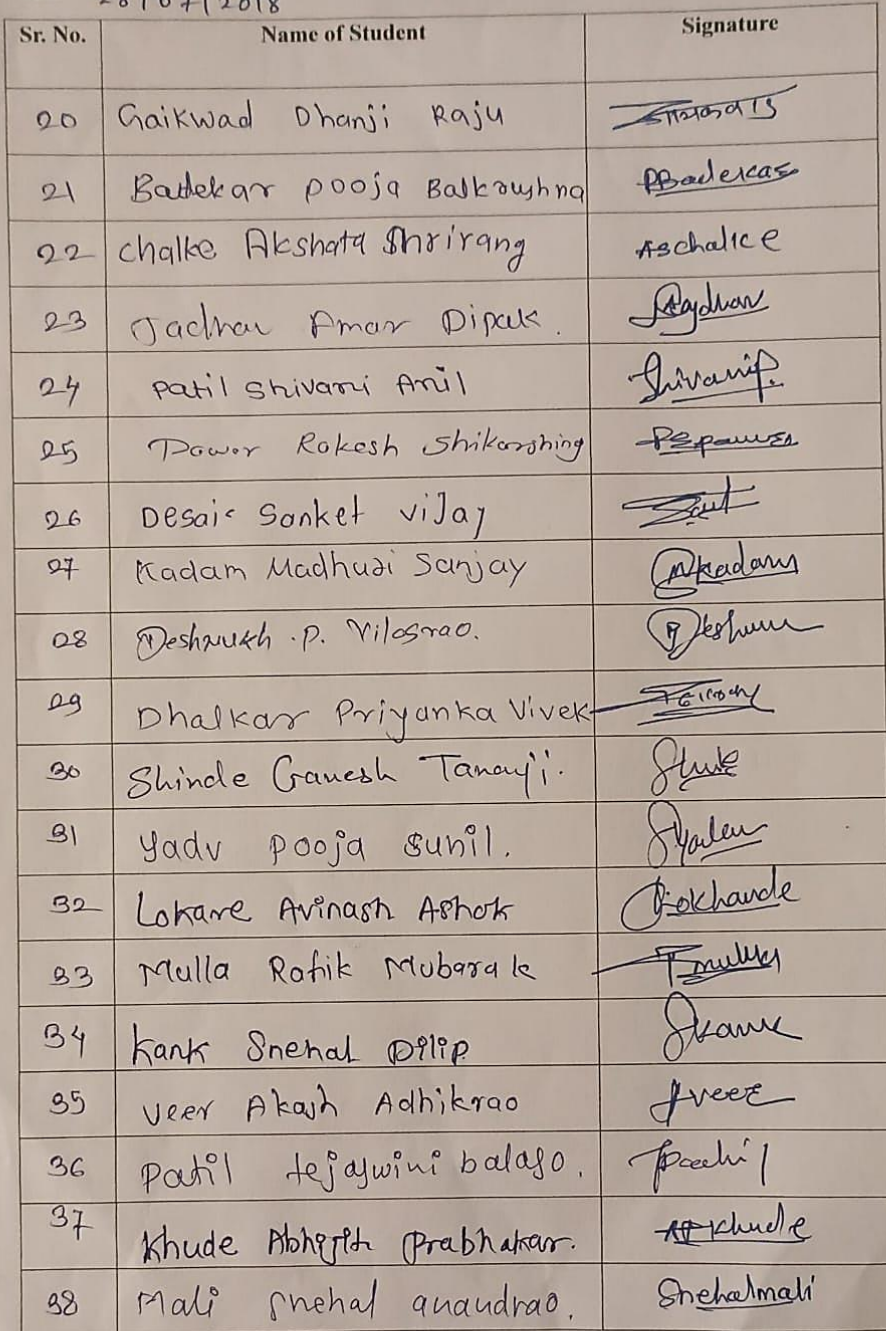 07/2018
Sr. No. Name of Student Signature
20 Gaikwad Dhanji Raju गायकवाड
21 Badekar pooja Balkrushna PBadekar
22 Chalke Akshata Shrirang Aschalke
23 Jadhav Amar Dipak.
24 Patil Shivani Anil ShivaniP.
25 Pawar Rakesh Shikarshing
26 Desai Sanket vijay
27 Kadam Madhuri Sanjay Mkadam
28 Deshmukh .P. Vilasrao.
29 Dhalkar Priyanka Vivek
30 Shinde Ganesh Tanaji.
31 Yadv pooja sunil.
32 Lokare Avinash Ashok Lokhande
33 Mulla Rafik Mubarak
34 Kank Snehal Dilip Skank
35 Veer Akash Adhikrao Aveer
36 Patil tejaswini balaso.
37 Khude Abhijith Prabhakar. APKhude
38 Mali snehal anandrao. Snehalmali